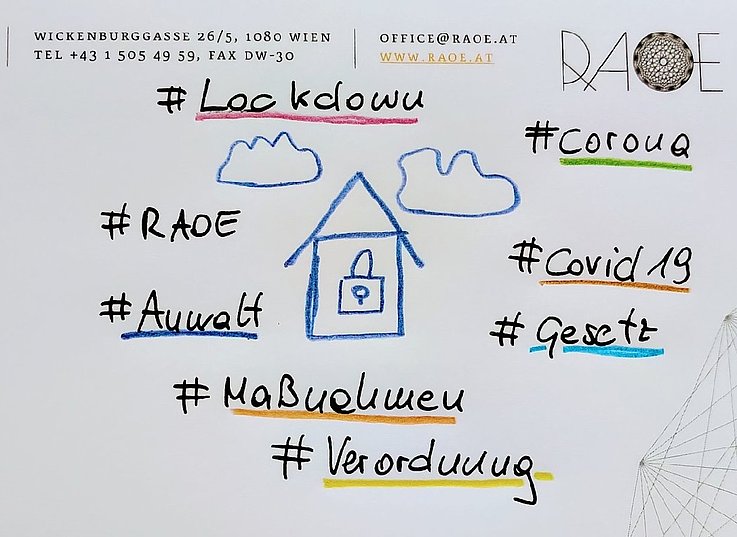 WICKENBURGGASSE 26/5, 1080 WIEN
TEL +43 1 505 49 59, FAX DW-30
OFFICE@RAOE.AT
WWW.RAOE.AT
RAOE
# Lockdown
#Corona
#RAOE
#Covid 19
#Anwalt
# Gesetz
# Maßnahmen
# Verordnung